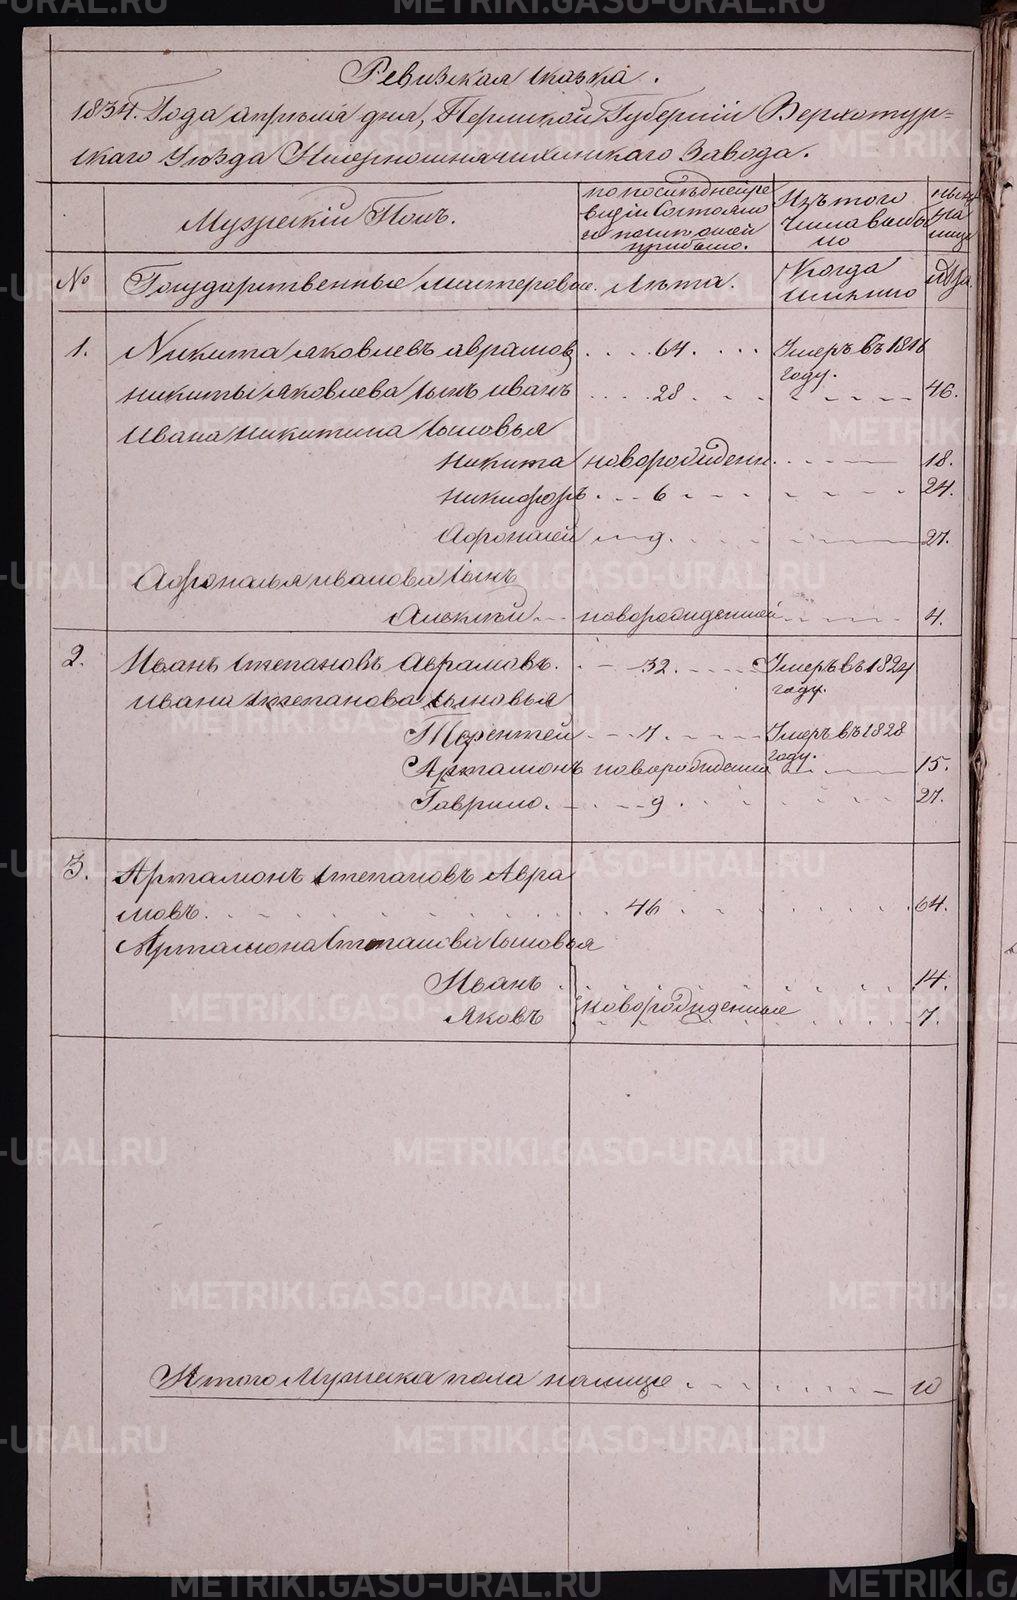 Ревизская сказка.
1834. Года апрѣля дня, Пермской Губерніи Верхотур=
скаго Уѣзда Завода.
Мужескій Полъ.
по послѣдней ре
визіи состояло
и после оной
прибыло.
Изъ того
числа выбы
ло
ныне
на
лице
№
Государственные мастеровые.
Лѣта.
Когда
именно
лѣта
1. Никита Яковлевъ Аврамов . . . . 64. . . . Умеръ въ 1816
году.
Никиты Яковлева сынъ Иванъ . . . . 28. 46.
Ивана Никитина сыновья
Никита новорожден. 18.
Никифоръ 6 24.
Афонасей 9. 27.
Афонасья Иванова сынъ
Алексѣй новорожденной 4.
2. Иванъ Степановъ Аврамовъ. 32. Умеръ въ 1824
году.
Ивана Степанова сыновья
Терентей 7. Умеръ въ 1828
году.
Артамонъ новорожденной 15.
Гаврило. 9. 27.
3. Артамонъ Степановъ Авра
мовъ. 46 64.
Артамона Степанова сыновья
Иванъ 14.
новорожденные
Яковъ 7.
Итого Мужеска пола налице 10
METRIKI.GASO-URAL.RU